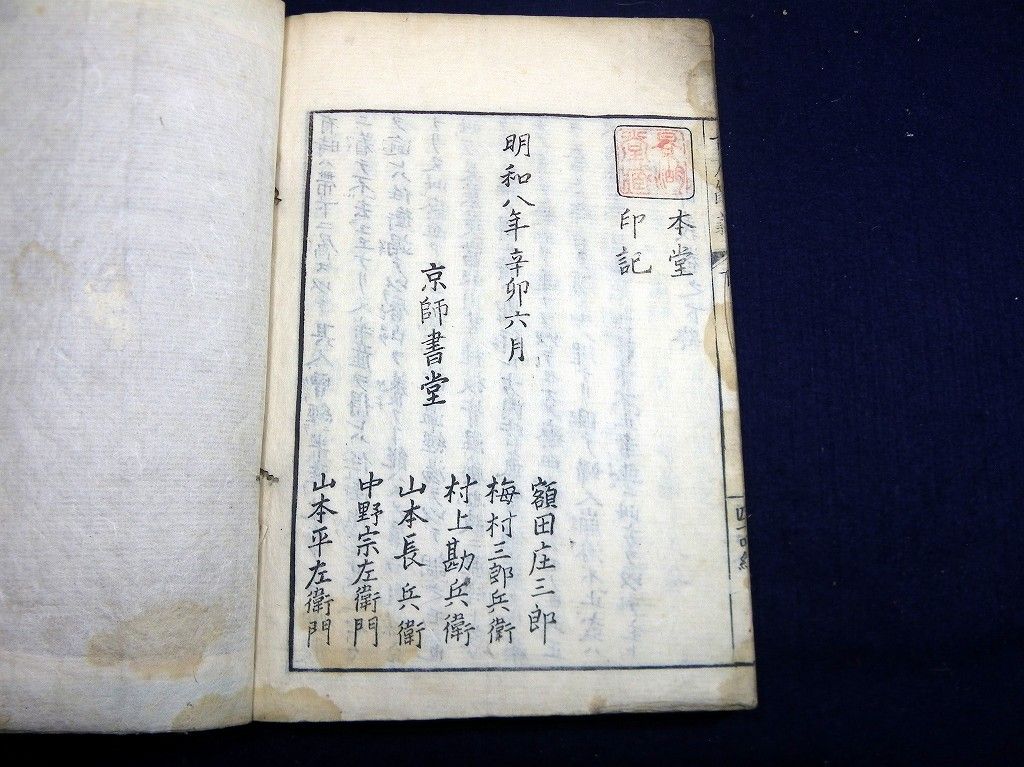 本堂
印記
明和八年辛卯六月
京師書堂
額田庄三郎
梅村三郎兵衛
村上勘兵衛
山本長兵衛
中野宗左衛門
山本平左衛門